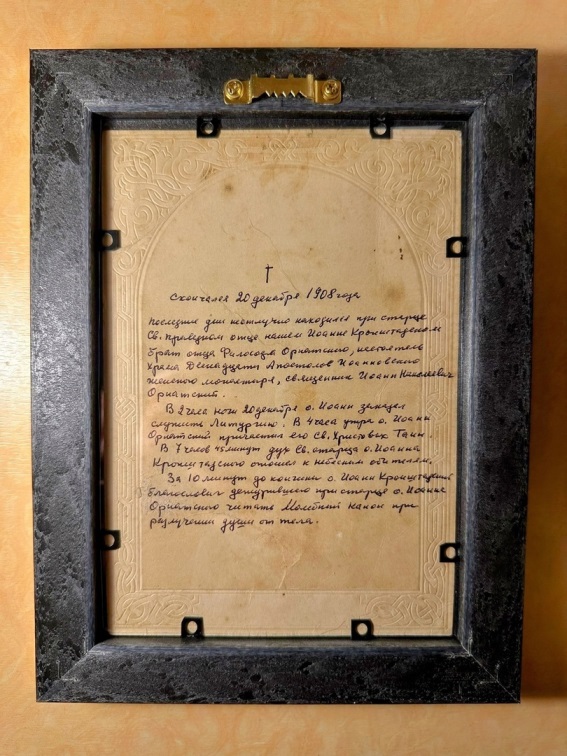 †
Скончался 20 декабря 1908 года
последние дни неотлучно находился при старце
Св. праведном отце нашем Иоанне Кронштадском
брат отца Философа Орнатского, настоятель
храма Двенадцати Апостолов Иоанновского
женского монастыря, священник Иоанн Николаевич
Орнатский.
В 2 часа ночи 20 декабря о. Иоанн
служить Литургию. В 4 часа утра о. Иоанн
Орнатский причастил его Св. Христовых Таин.
В 7 часов 45 минут дух Св. старца о. Иоанна
Кронштадского отошел к небесным обителям.
За 10 минут до кончины о. Иоанн Кронштадский
благословил дежурившего при старце о. Иоанна
Орнатского читать Молебный канон при
разлучении души от тела.